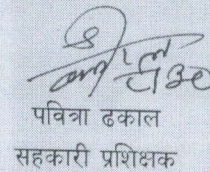 पवित्रा ढकाल
सहकारी प्रशिक्षक